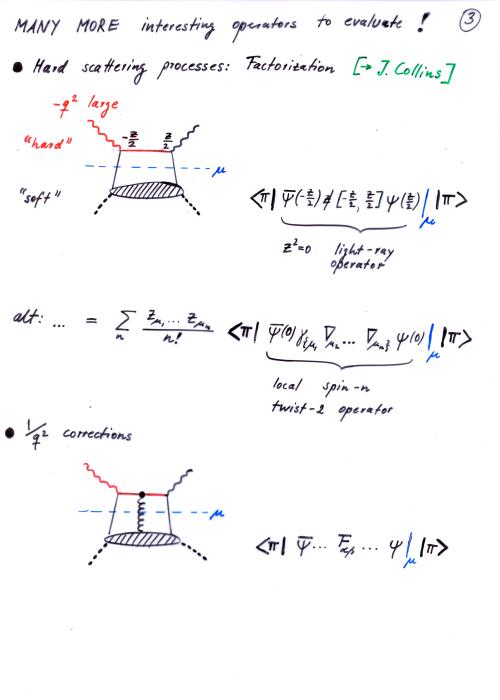 MANY MORE interesting operators to evaluate ! ③
● Hard scattering processes: Factorization [→ J. Collins]
-q² large
"hard" -z/2 z/2
μ
"soft"
<π| ψ̄(-z/2) z̸ [-z/2, z/2] ψ(z/2)|_μ |π>
z²=0 light-ray
operator
alt: ... = ∑_n z_μ₁ ... z_μₙ / n! <π| ψ̄(0) γ_{μ₁ ∇_μ₂ ... ∇_μₙ} ψ(0)|_μ |π>
local spin-n
twist-2 operator
● 1/q² corrections
μ
<π| ψ̄ ... F_αβ ... ψ|_μ |π>